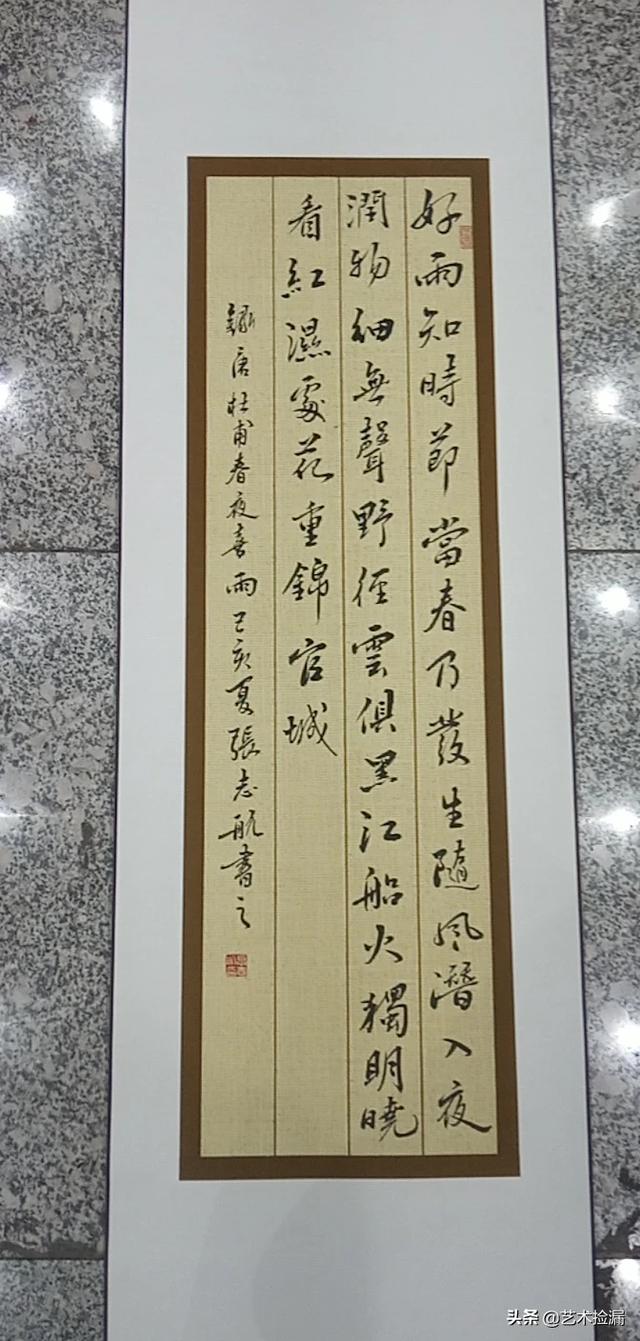 好雨知時節當春乃發生隨風潛入夜
潤物細無聲野徑雲俱黑江船火獨明曉
看紅濕處花重錦官城
錄唐杜甫春夜喜雨己亥夏張志航書之
头条 @艺术捡漏